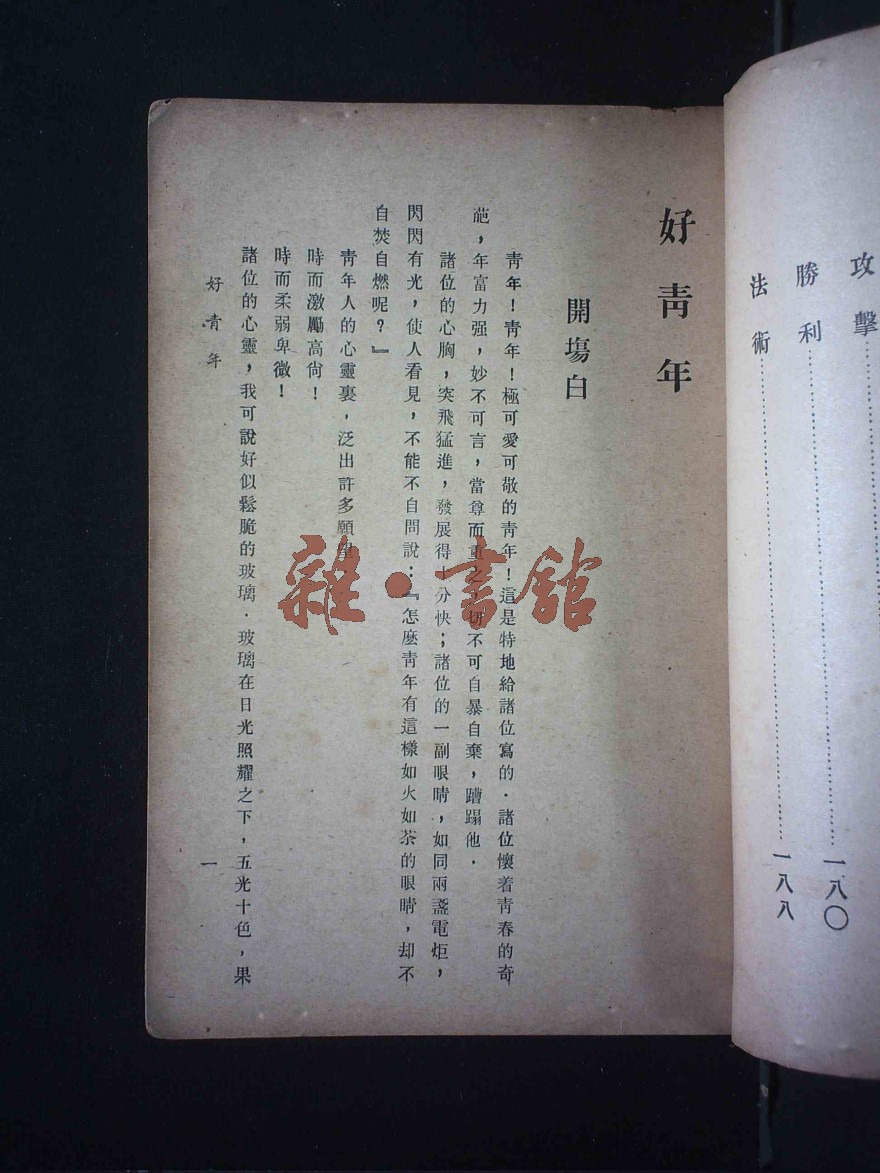 攻擊
勝利 一八〇
法術 一八八
好青年
開塲白
青年！青年！極可愛可敬的青年！這是特地給諸位寫的．諸位懷着青春的奇
葩，年富力强，妙不可言，當尊而重之，切不可自暴自棄，蹧蹋他．
諸位的心胸，突飛猛進，發展得十分快；諸位的一副眼睛，如同兩盞電炬，
閃閃有光，使人看見，不能不自問說：『怎麼青年有這樣如火如荼的眼睛，却不
自焚自燃呢？』
青年人的心靈裏，泛出許多願望
時而激勵高尙！
時而柔弱卑微！
諸位的心靈，我可說好似鬆脆的玻璃．玻璃在日光照耀之下，五光十色，果
好青年 一
雜·書館